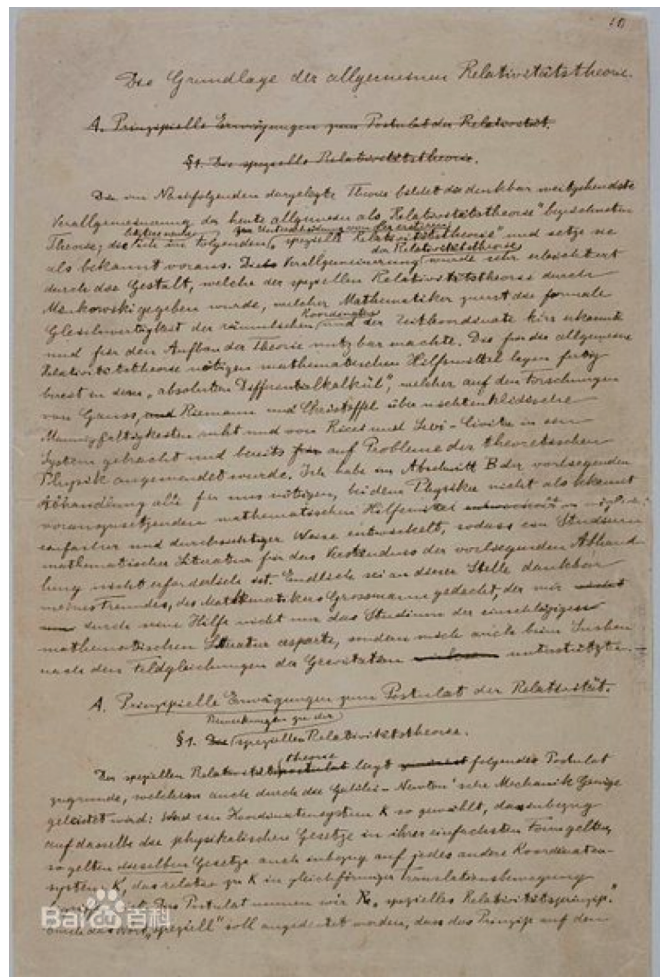 10
Die Grundlage der allgemeinen Relativitätstheorie.
A. Prinzipielle Erwägungen zum Postulat der Relativität.
§1. Die spezielle Relativitätstheorie.
Die im Nachfolgenden dargelegte Theorie bildet die denkbar weitgehendste
Verallgemeinerung der heute allgemein als „Relativitätstheorie" bezeichneten
Theorie; die ich im folgenden „spezielle Relativitätstheorie" und setze sie
zur Unterscheidung von der ersteren
der Relativitätstheorie
als bekannt voraus. Die Verallgemeinerung wurde sehr erleichtert
durch die Gestalt, welche der speziellen Relativitätstheorie durch
Minkowski gegeben wurde, welcher Mathematiker zuerst die formale
Koordinaten
Gleichwertigkeit der räumlichen und der Zeitkoordinate klar erkannte
und für den Aufbau der Theorie nutzbar machte. Die für die allgemeine
Relativitätstheorie nötigen mathematischen Hilfsmittel lagen fertig
bereit in dem „absoluten Differentialkalkül", welcher auf den Forschungen
von Gauss, und Riemann und Christoffel über nichteuklidische
Mannigfaltigkeiten ruht und von Ricci und Levi-Civita in ein
System gebracht und bereits auf Probleme der theoretischen
Physik angewendet wurde. Ich habe im Abschnitt B der vorliegenden
Abhandlung alle für uns nötigen, bei dem Physiker nicht als bekannt
vorauszusetzenden mathematischen Hilfsmittel in
einfacher und durchsichtiger Weise entwickelt, sodass ein Studium
mathematischer Literatur für das Verständnis der vorliegenden Abhand
lung nicht erforderlich ist. Endlich sei an dieser Stelle dankbar
meines Freundes, des Mathematikers Grossmann gedacht, der mir
durch seine Hilfe nicht nur das Studium der einschlägigen
mathematischen Literatur ersparte, sondern mich auch beim Suchen
nach den Feldgleichungen der Gravitation unterstützte.
A. Prinzipielle Erwägungen zum Postulat der Relativität.
Bemerkungen zu der
§1. Die speziellen Relativitätstheorie.
theorie
Der speziellen Relativitätspostulat liegt folgendes Postulat
zugrunde, welchem auch durch die Galilei-Newton'sche Mechanik Genüge
geleistet wird: Wird ein Koordinatensystem K so gewählt, dass inbezug
auf dasselbe die physikalischen Gesetze in ihrer einfachsten Form gelten,
so gelten dieselben Gesetze auch inbezug auf jedes andere Koordinaten-
system K', das relativ zu K in gleichförmiger Translationsbewegung
Postulat nennen wir „spezielles Relativitätsprinzip."
Durch das Wort „speziell" soll angedeutet werden, dass das Prinzip auf den
Bai 百科